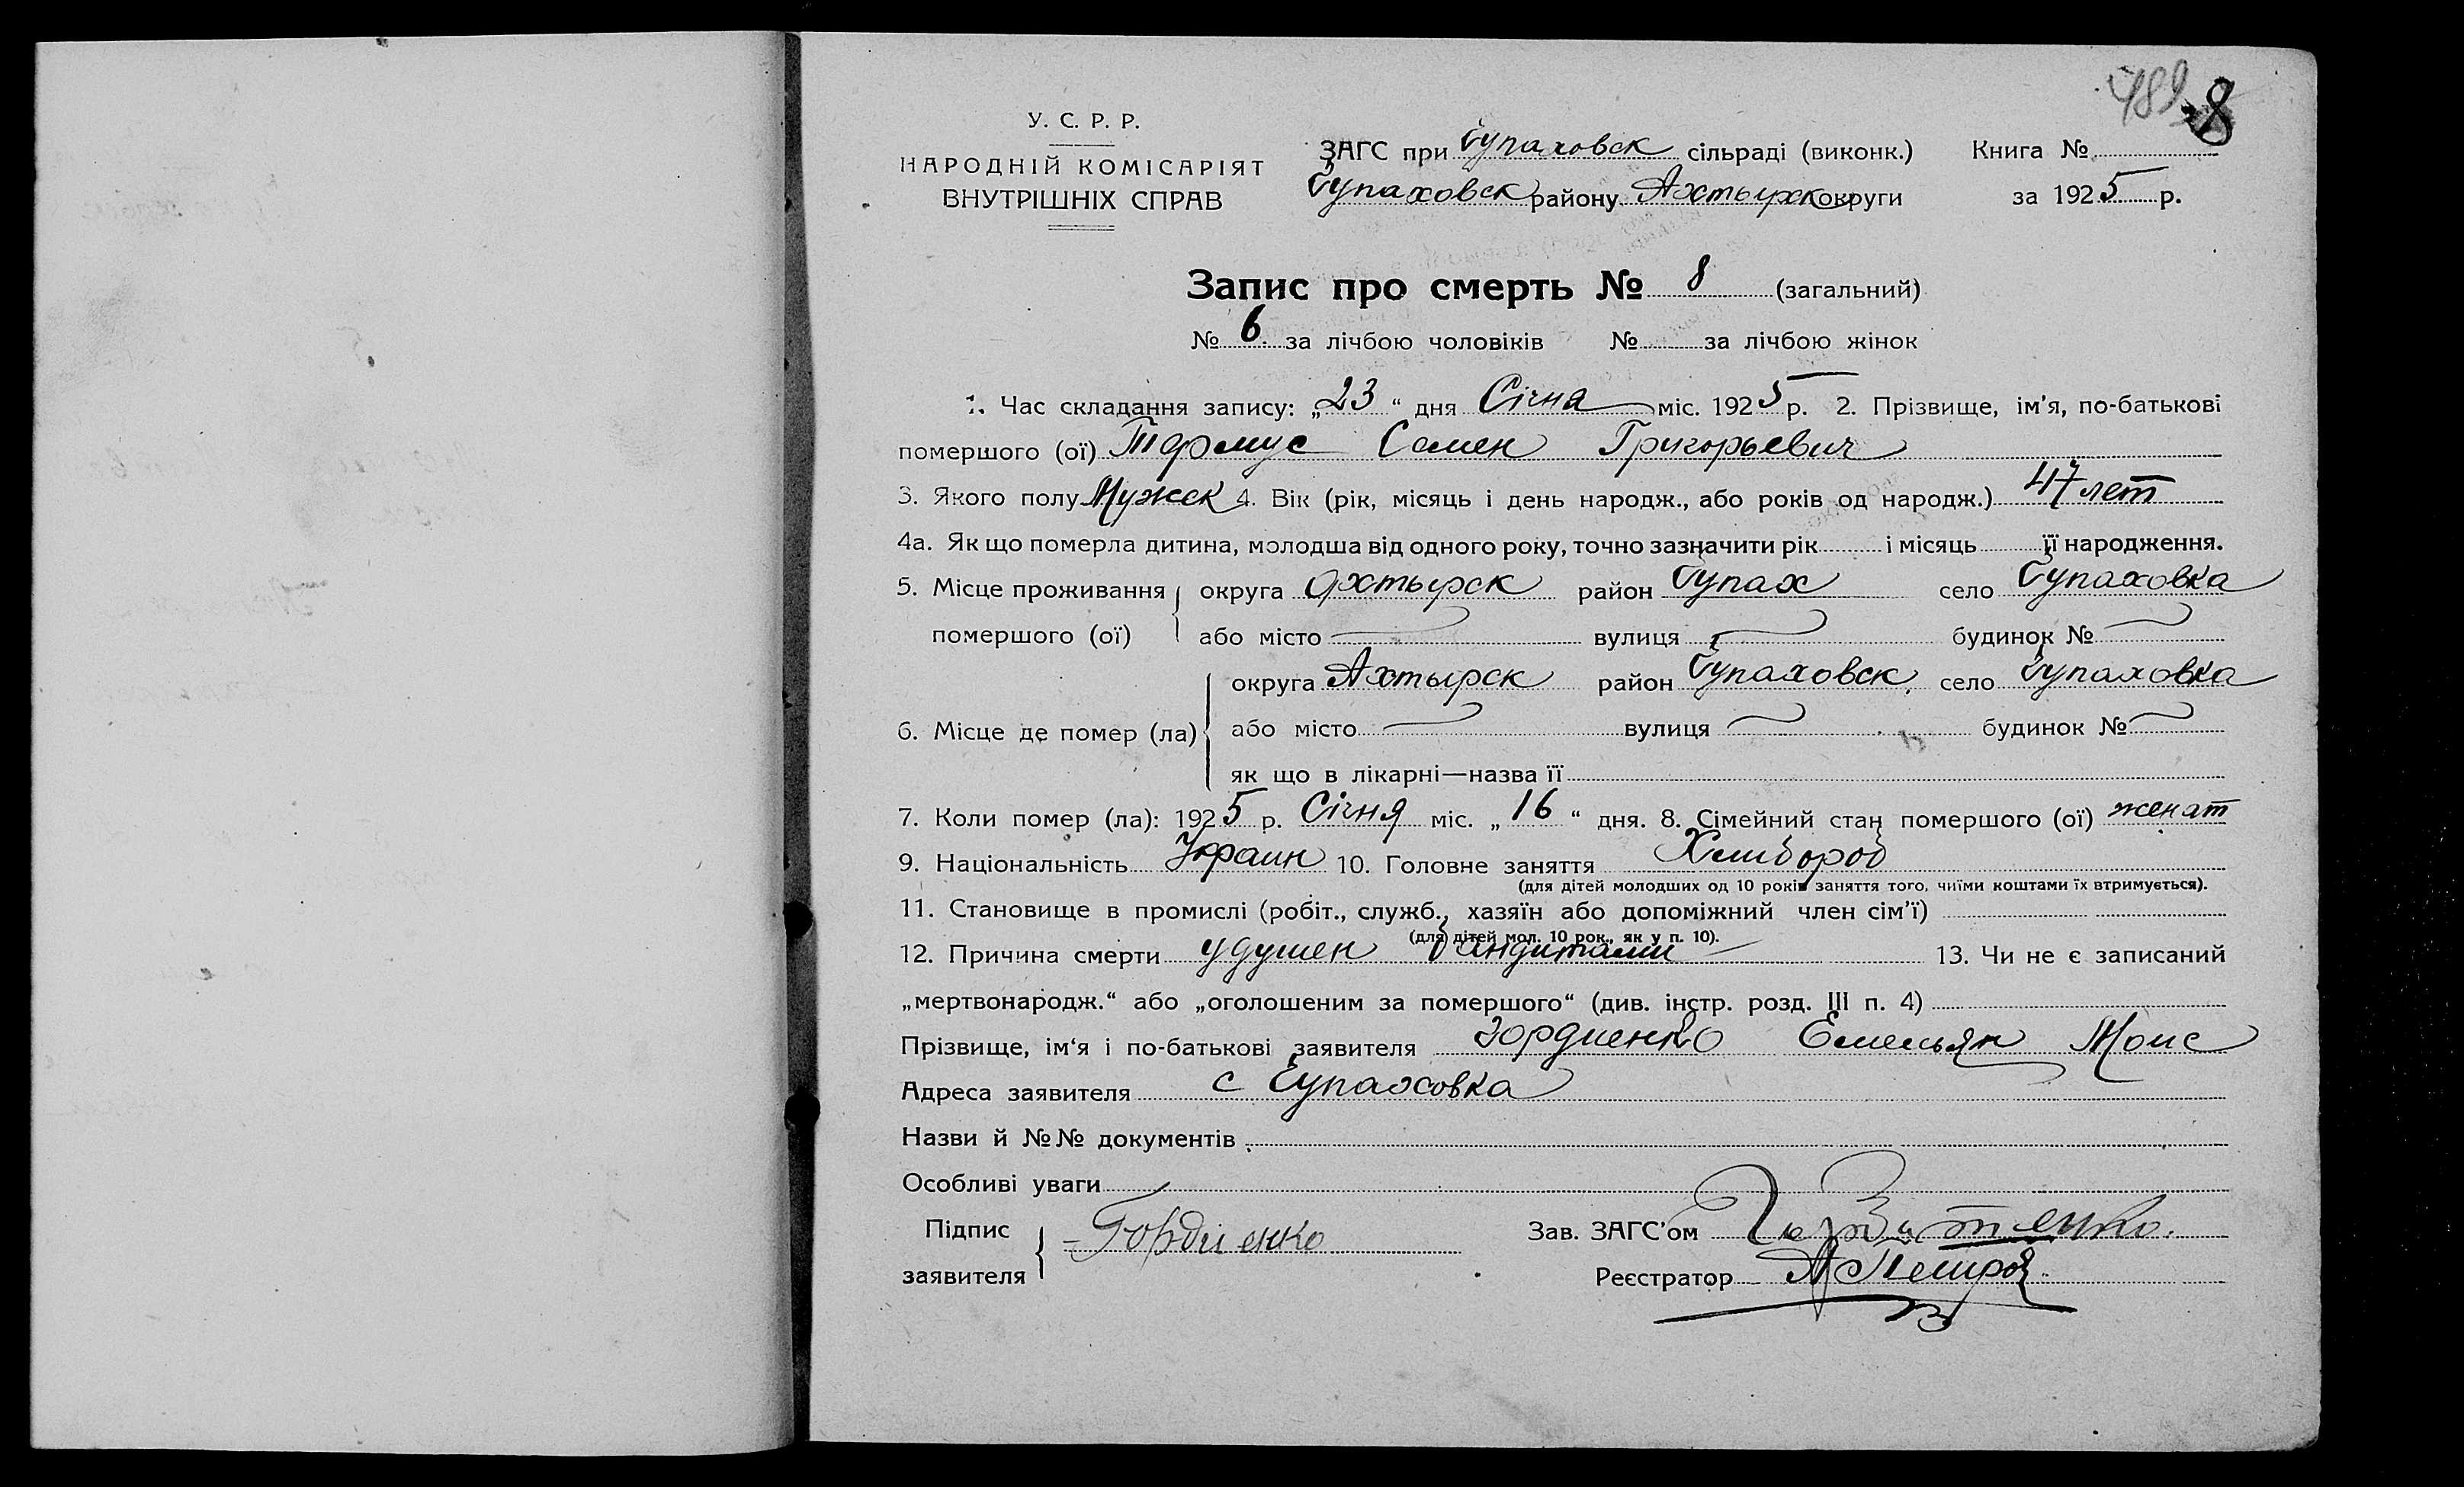 489 8
У. С. Р. Р.
НАРОДНІЙ КОМІСАРІЯТ
ВНУТРІШНІХ СПРАВ
ЗАГС при Чупаховск сільраді (виконк.) Книга №
Чупаховск району Ахтырск округи за 1925 р.
Запис про смерть № 8 (загальний)
№ 6 за лічбою чоловіків № за лічбою жінок
1. Час складання запису: „23“ дня Січна міс. 1925 р. 2. Прізвище, ім'я, по-батькові
помершого (ої) Семен Григорьевич
3. Якого полу Мужск 4. Вік (рік, місяць і день народж., або років од народж.) 47 лет
4а. Як що померла дитина, молодша від одного року, точно зазначити рік і місяць її народження.
5. Місце проживання округа Ахтырск район Чупах село Чупаховка
помершого (ої) або місто вулиця будинок №
округа Ахтырск район Чупаховск село Чупаховка
6. Місце де помер (ла) або місто вулиця будинок №
як що в лікарні—назва її
7. Коли помер (ла): 1925 р. Січня міс. „16“ дня. 8. Сімейний стан помершого (ої) женат
9. Національність Украин 10. Головне заняття Хлибороб
(для дітей молодших од 10 років заняття того, чиїми коштами їх втримується).
11. Становище в промислі (робіт., служб., хазяїн або допоміжний член сім'ї)
(для дітей мол. 10 рок., як у п. 10).
12. Причина смерти удушен бандитами 13. Чи не є записаний
„мертвонародж.“ або „оголошеним за помершого“ (див. інстр. розд. III п. 4)
Прізвище, ім'я і по-батькові заявителя Гордиенко Емельян Моис
Адреса заявителя с Чупаховка
Назви й №№ документів
Особливі уваги
Підпис
заявителя Гордиенко
Зав. ЗАГС'ом
Реєстратор